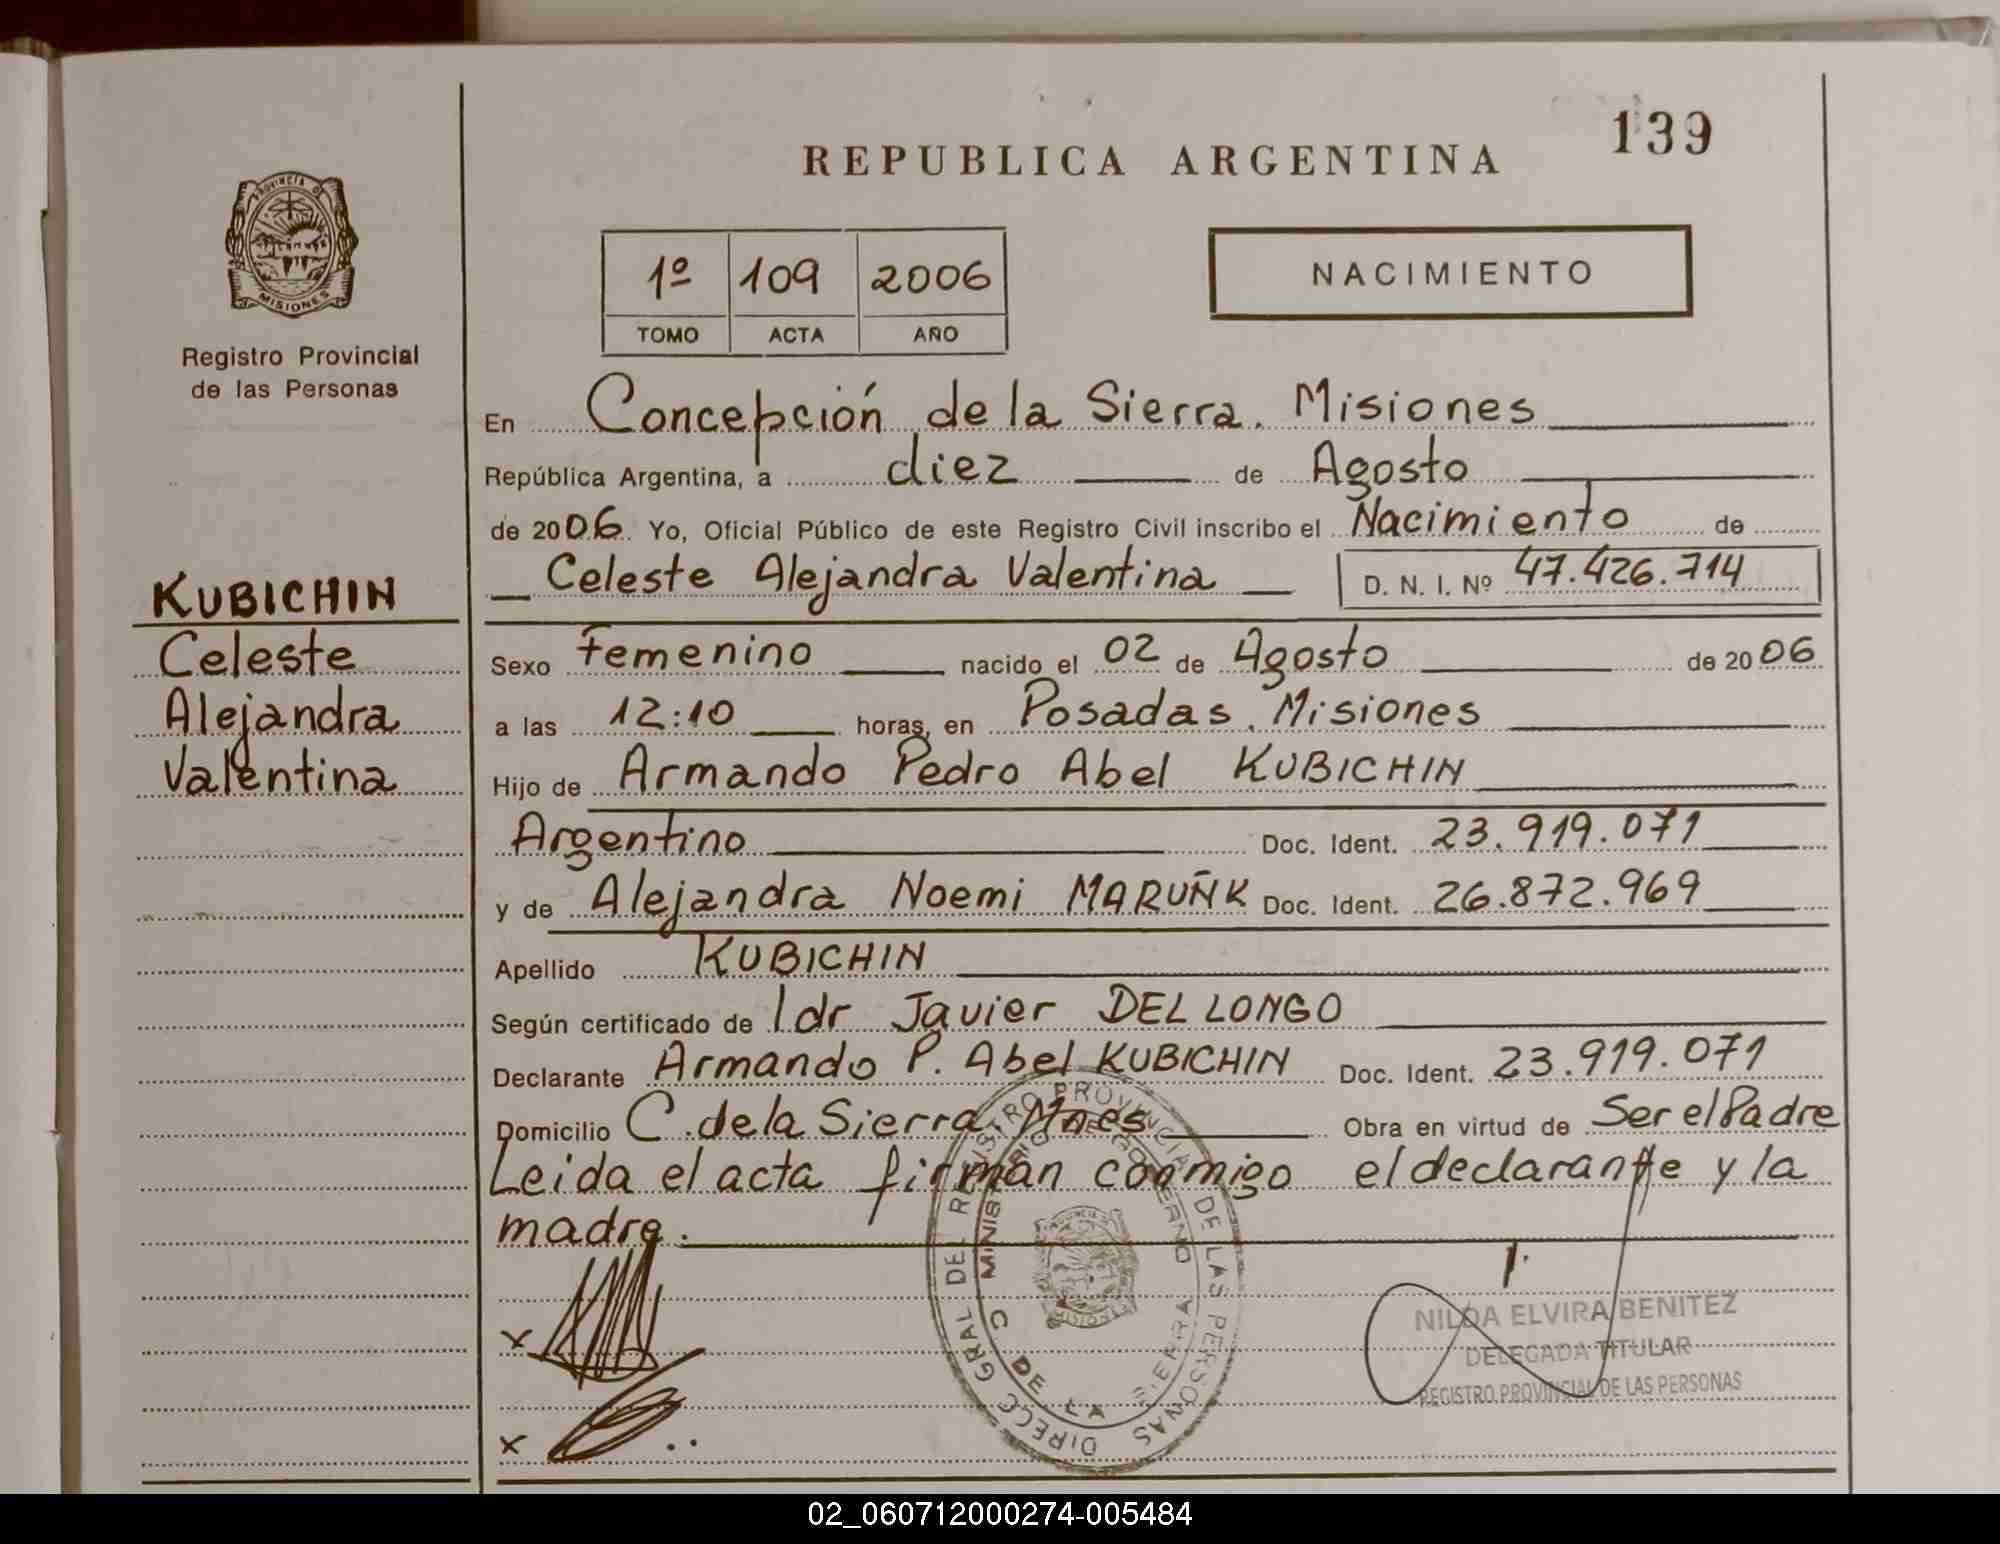 139
REPUBLICA ARGENTINA
PROVINCIA D
MISIONES
Registro Provincial
de las Personas
1º 109 2006
TOMO ACTA AÑO
NACIMIENTO
En Concepción de la Sierra. Misiones
República Argentina, a diez de Agosto
de 2006. Yo, Oficial Público de este Registro Civil inscribo el Nacimiento de
Celeste Alejandra Valentina D. N. I. Nº 47.426.714
KUBICHIN
Celeste
Alejandra
Valentina
Sexo Femenino nacido el 02 de Agosto de 2006
a las 12:10 horas, en Posadas. Misiones
Hijo de Armando Pedro Abel KUBICHIN
Argentino Doc. Ident. 23.919.071
y de Alejandra Noemi MARUÑK Doc. Ident. 26.872.969
Apellido KUBICHIN
Según certificado de Idr Javier DEL LONGO
Declarante Armando P. Abel KUBICHIN Doc. Ident. 23.919.071
Domicilio C. de la Sierra. Mnes Obra en virtud de Ser el Padre
Leida el acta firman conmigo el declarante y la
madre.
DIRECC GRAL DEL REGISTRO PROVINCIAL DE LAS PERSONAS
MINISTERIO DE GOBIERNO
C DE LA SIERRA
MISIONES
x
x
NILDA ELVIRA BENITEZ
DELEGADA TITULAR
REGISTRO PROVINCIAL DE LAS PERSONAS
02_060712000274-005484